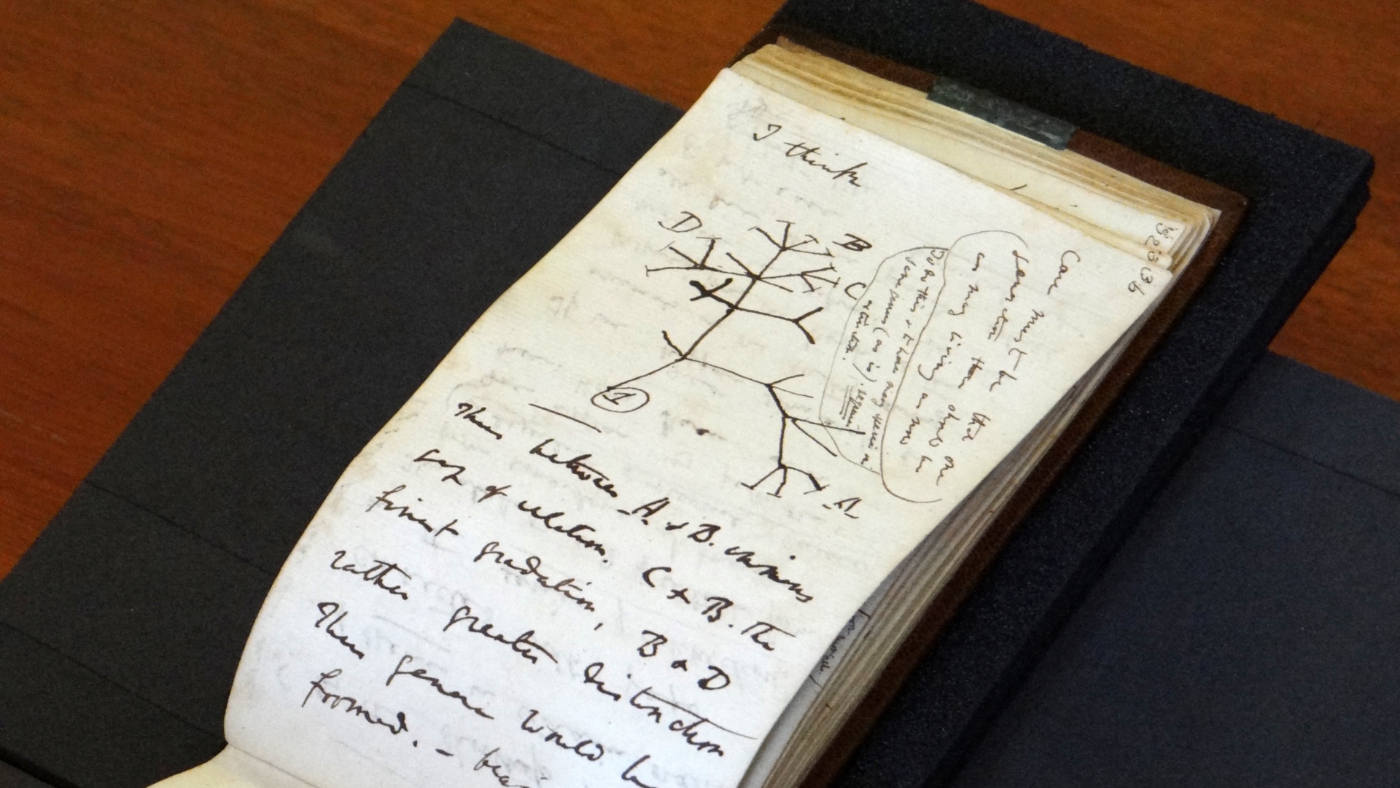 36
I think
Case must be that one
generation then should be
as many living as now
To do this & to have many species in
same genus (as is). requires
extinction.
D
B
C
1
A
Thus between A. & B. immens
gap of relation. C + B. The
finest gradation, B & D
rather greater distinction
Thus genera would be
formed. —